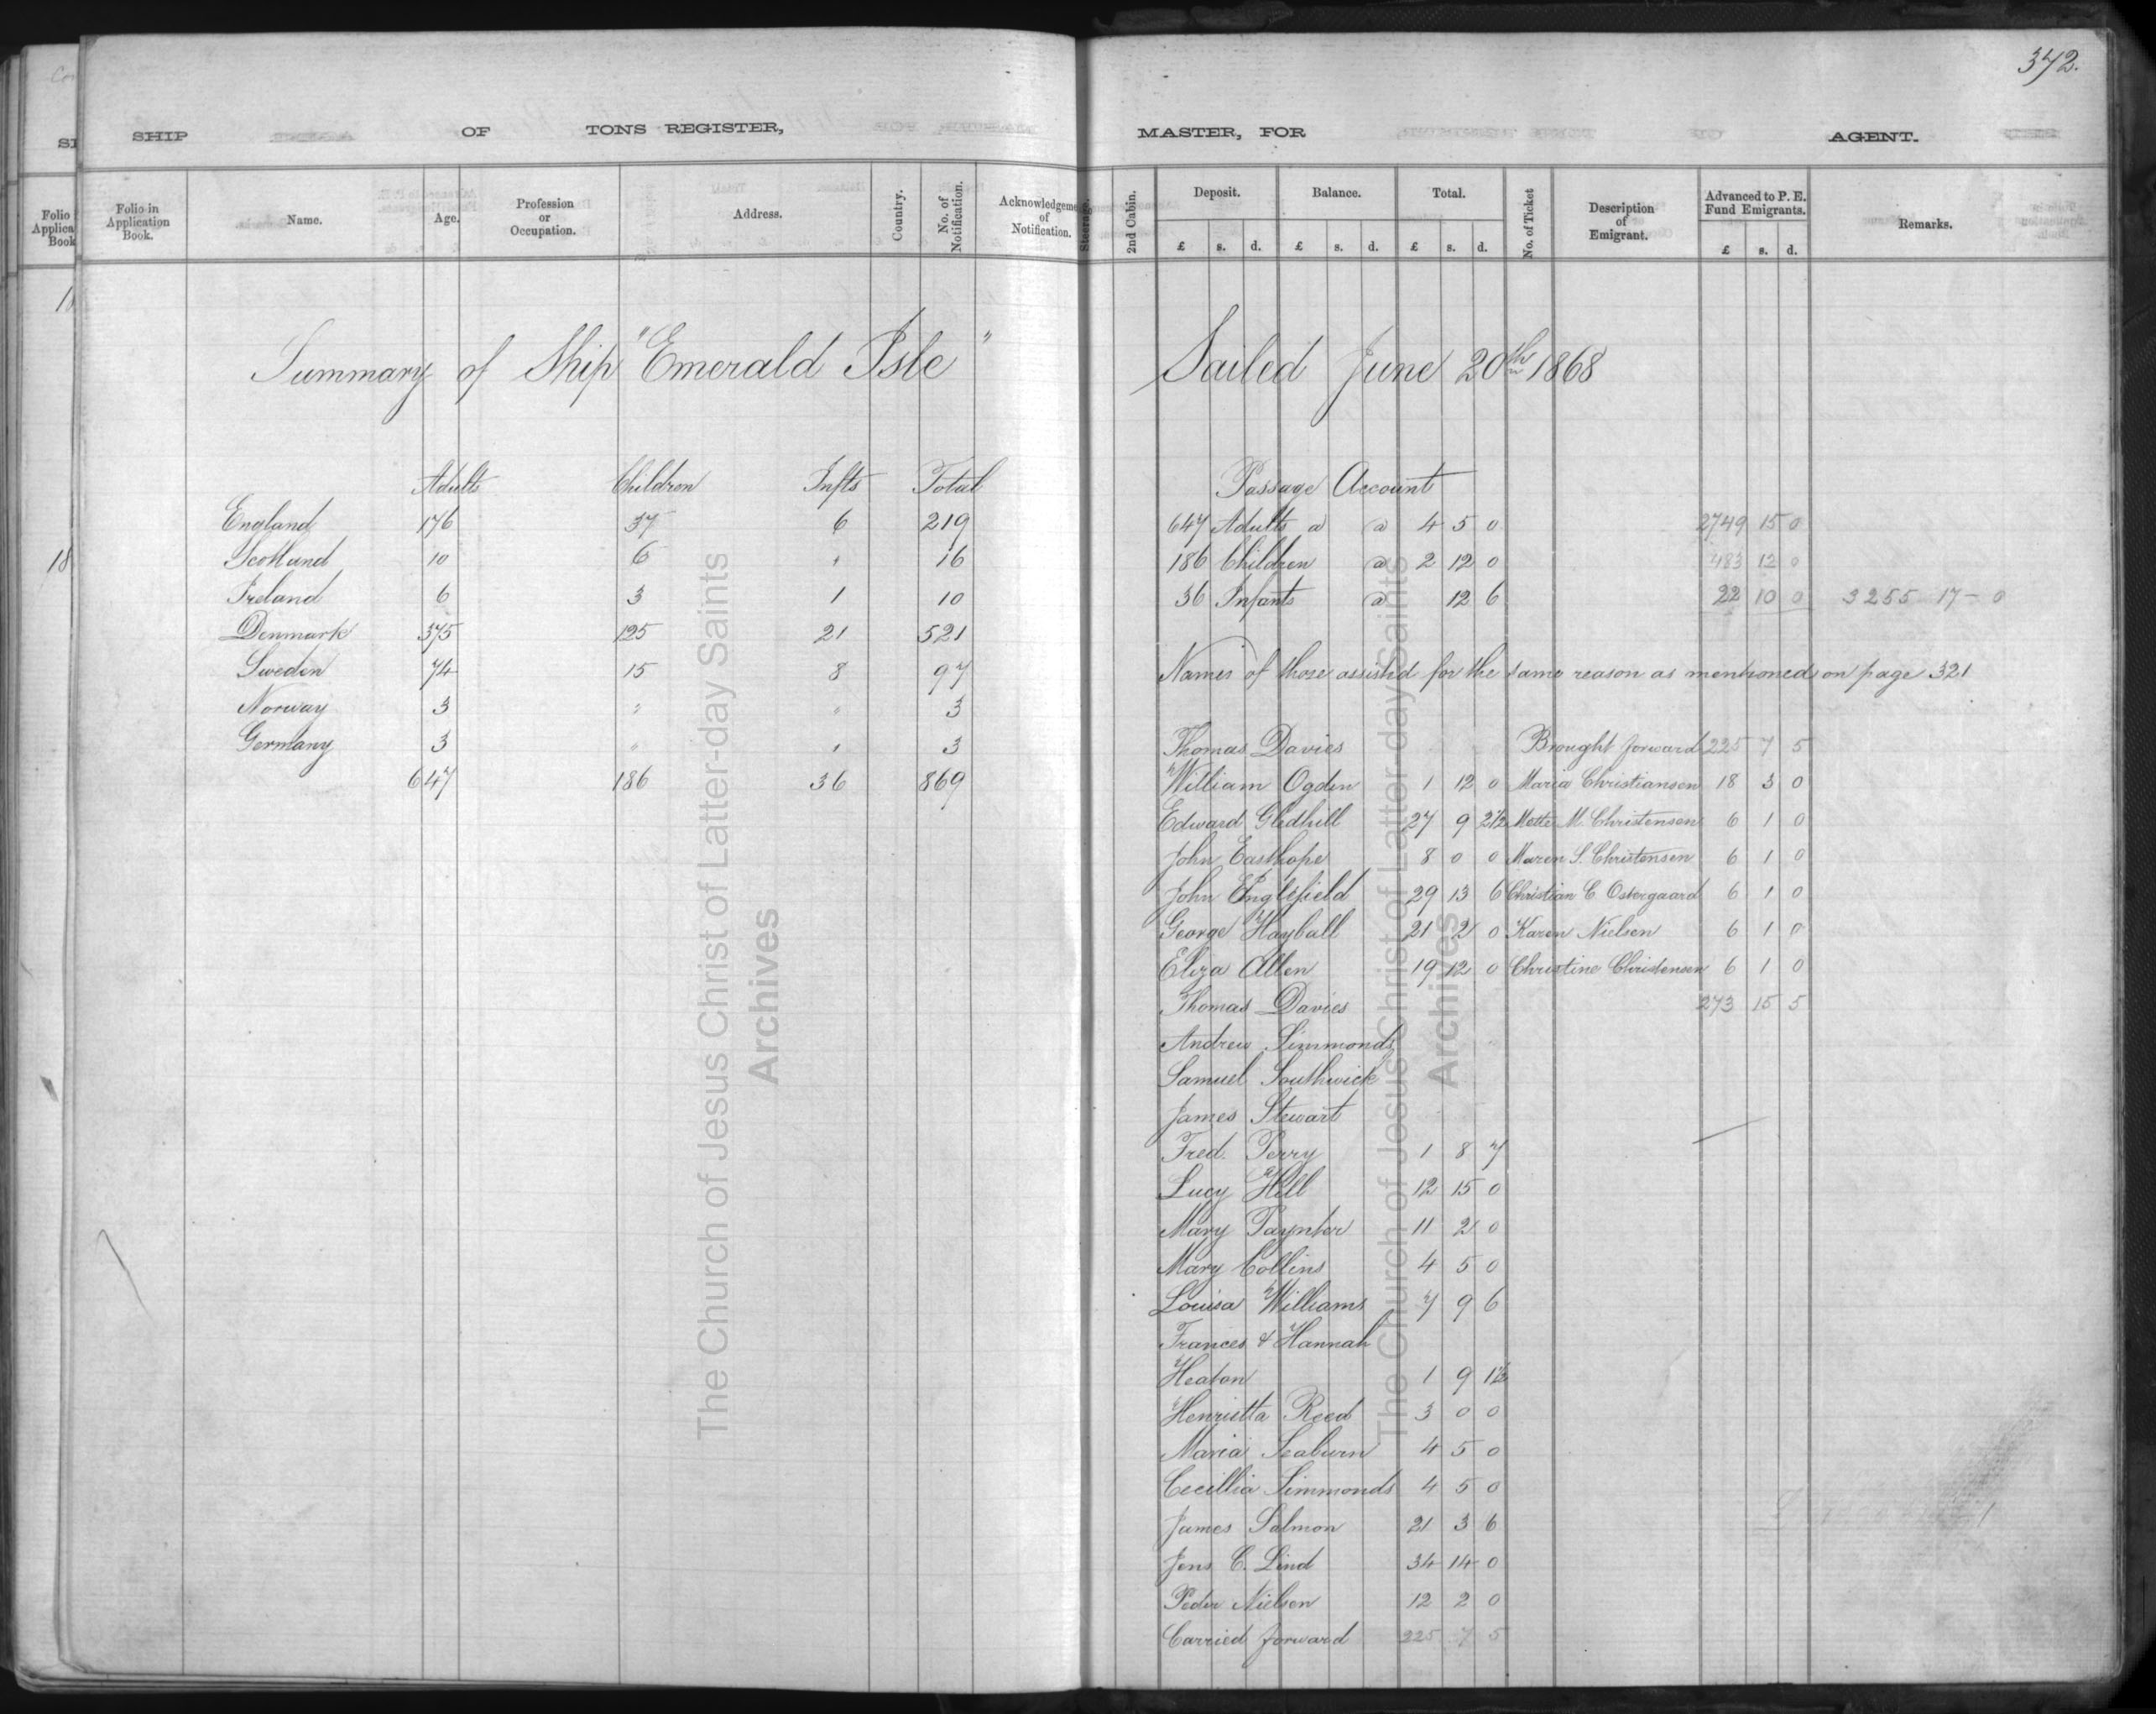 372.
SHIP OF TONS REGISTER, MASTER, FOR AGENT.
Folio in Application Book. Name. Age. Profession or Occupation. Address. Country. No. of Notification. Acknowledgeme of Notification. Steerage. 2nd Cabin. Deposit. Balance. Total. No. of Ticket Description of Emigrant. Advanced to P. E. Fund Emigrants. Remarks.
£ s. d. £ s. d. £ s. d. £ s. d.
Summary of Ship "Emerald Isle" Sailed June 20th 1868
Adults Children Infts Total
England 176 37 6 219
Scotland 10 6 " 16
Ireland 6 3 1 10
Denmark 375 125 21 521
Sweden 74 15 8 97
Norway 3 " " 3
Germany 3 " " 3
647 186 36 869
Passage Account
647 Adults a @ 4 5 0 2749 15 0
186 Children @ 2 12 0 483 12 0
36 Infants @ 12 6 22 10 0 3255 17 - 0
Names of those assisted for the same reason as mentioned on page 321
Thomas Davies Brought forward 225 7 5
William Ogden 1 12 0 Maria Christiansen 18 3 0
Edward Gledhill 27 9 2½ Mette M. Christensen 6 1 0
John Easthope 8 0 0 Maren S. Christensen 6 1 0
John Englefield 29 13 6 Christian C Ostergaard 6 1 0
George Hayball 21 2 0 Karen Nielsen 6 1 0
Eliza Allen 19 12 0 Christine Christensen 6 1 0
Thomas Davies 273 15 5
Andrew Simmonds
Samuel Southwick
James Stewart
Fred. Perry 1 8 7
Lucy Hill 12 15 0
Mary Paynter 11 2 0
Mary Collins 4 5 0
Louisa Williams 7 9 6
Frances & Hannah
Heaton 1 9 1½
Henrietta Reed 3 0 0
Maria Seaburn 4 5 0
Cecillia Simmonds 4 5 0
James Salmon 21 3 6
Jens C. Lind 34 14 0
Peder Nielsen 12 2 0
Carried forward 225 7 5
The Church of Jesus Christ of Latter-day Saints
Archives
The Church of Jesus Christ of Latter-day Saints
Archives